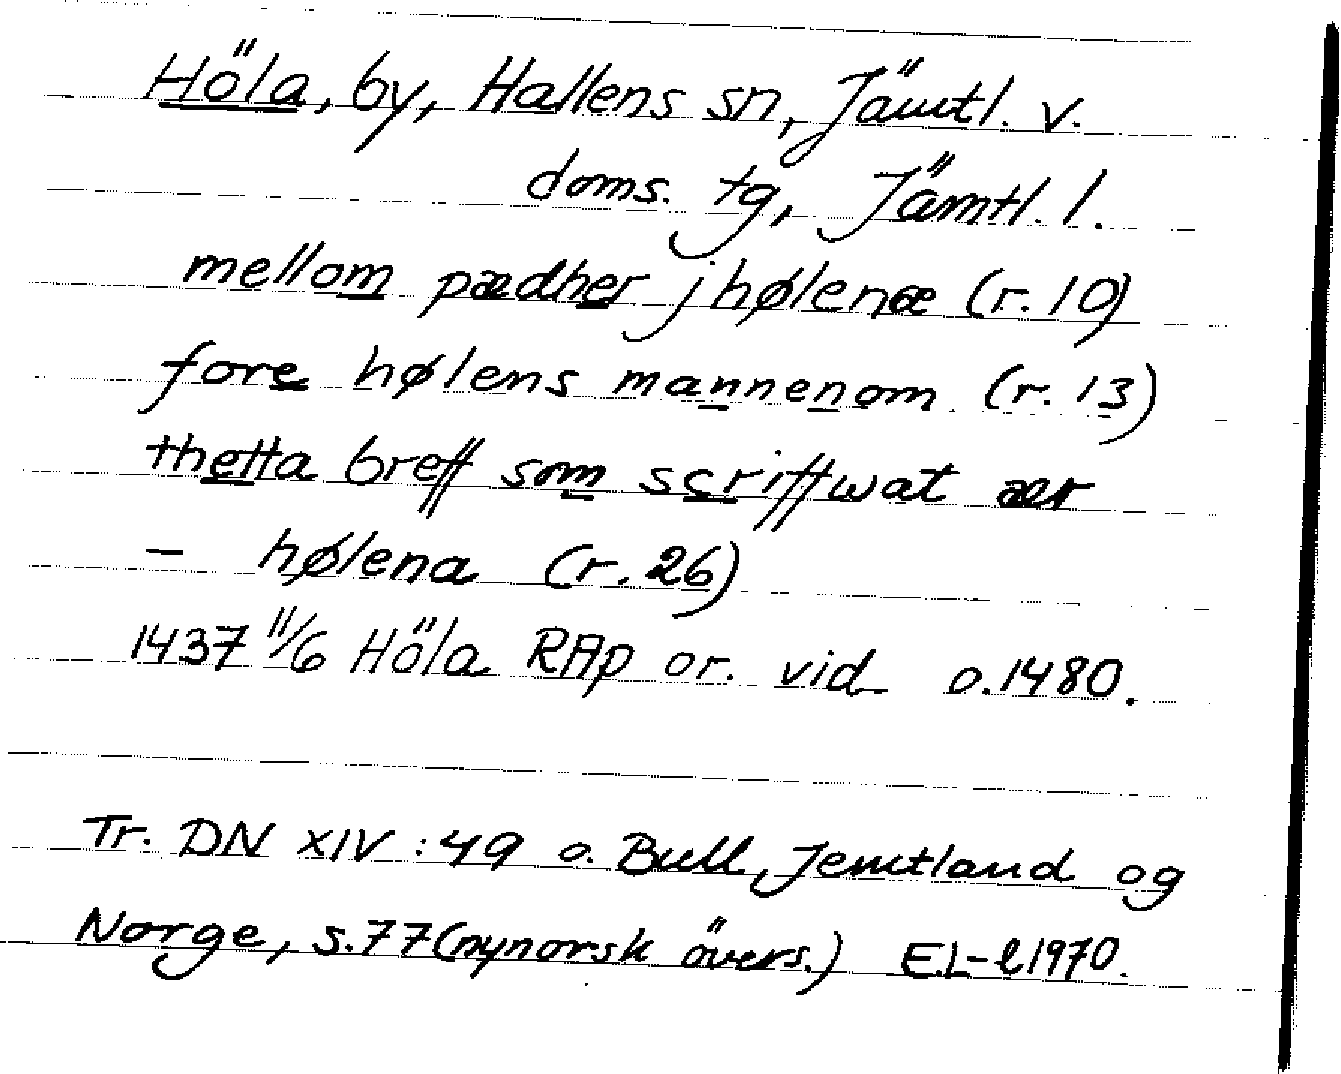 Höla, by, Hallens sn, Jämtl. v.
doms. tg, Jämtl. l.
mellom pædher j hølenæ (r. 10)
fore hølens mannenom (r. 13)
thetta breff som scriffwat ær
- hølena (r. 26)
1437 11/6 Höla RAp or. vid o. 1480.
Tr. DN XIV : 49 o. Bull, Jemtland og
Norge, s. 77 (nynorsk övers.) EL-l 1970.